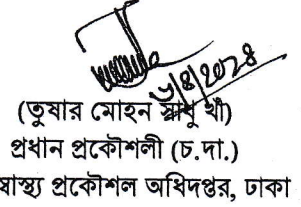 ৮/৪/২০২৪
(তুষার মোহন সাধু খাঁ)
প্রধান প্রকৌশলী (চ.দা.)
স্বাস্থ্য প্রকৌশল অধিদপ্তর, ঢাকা